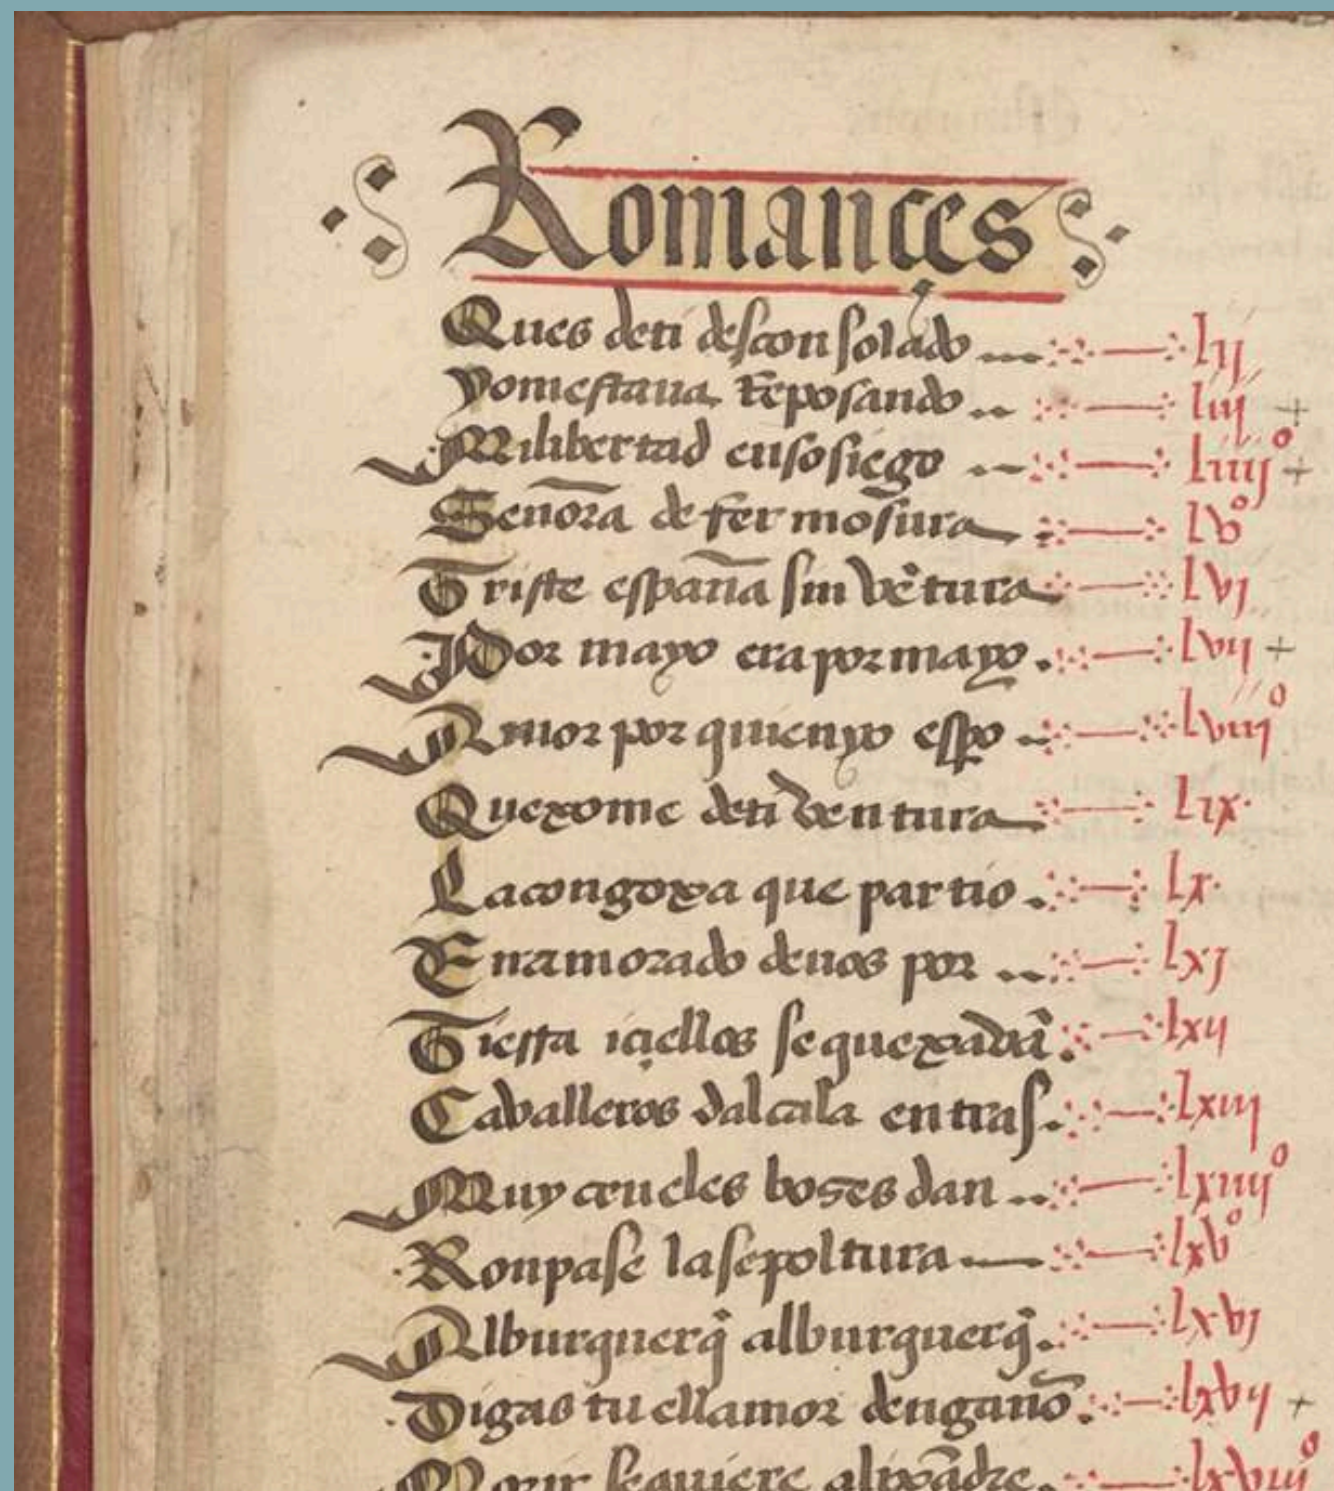 Romançes
Ques deti desconsolado lij
yomestaua Reposando liij +
Milibertad ensosiego liiijº +
Señora de fermosura lvº
Triste españa sin vẽtura lvj
Por mayo era por mayo lvij +
Amor por quienyo espo lviijº
Quexome deti ventura lix
Lacongoxa que partio lx
Enamorado deuos por lxj
Tierra icielos sequexavã lxij
Caballeros dalcala entras lxiij
Muy crueles boses dan lxiiijº
Ronpase lasepoltura lxvº
Alburquerq̃ alburquerq̃ lxvj
Digas tu ellamor dengaño lxvij +
Morir sequiere alixãdre lxviijº